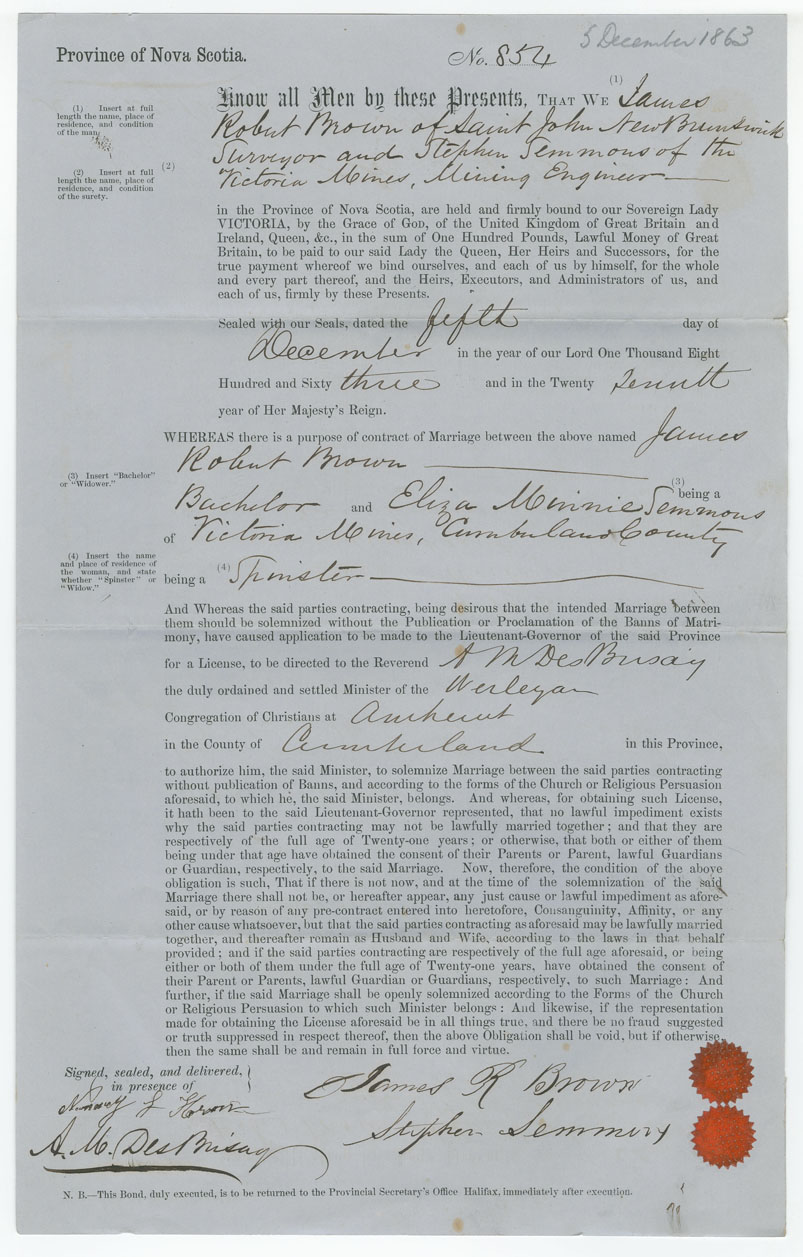 5 December 1863
Province of Nova Scotia.
No. 854
Know all Men by these Presents, THAT WE (1) James
Robert Brown of Saint John New Brunswick
Surveyor and Stephen Semmons of the
Victoria Mines, Mining Engineer
(1) Insert at full
length the name, place of
residence, and condition
of the man.
(2)
(2) Insert at full
length the name, place of
residence, and condition
of the surety.
in the Province of Nova Scotia, are held and firmly bound to our Sovereign Lady
VICTORIA, by the Grace of GOD, of the United Kingdom of Great Britain and
Ireland, Queen, &c., in the sum of One Hundred Pounds, Lawful Money of Great
Britain, to be paid to our said Lady the Queen, Her Heirs and Successors, for the
true payment whereof we bind ourselves, and each of us by himself, for the whole
and every part thereof, and the Heirs, Executors, and Administrators of us, and
each of us, firmly by these Presents.
Sealed with our Seals, dated the fifth day of
December in the year of our Lord One Thousand Eight
Hundred and Sixty three and in the Twenty
year of Her Majesty's Reign.
WHEREAS there is a purpose of contract of Marriage between the above named James
Robert Brown
(3) Insert "Bachelor"
or "Widower."
(3)
being a
Bachelor and Eliza Minnie Semmons
of Victoria Mines, Cumberland County
(4) Insert the name
and place of residence of
the woman, and state
whether "Spinster" or
"Widow."
being a (4) Spinster
And Whereas the said parties contracting, being desirous that the intended Marriage between
them should be solemnized without the Publication or Proclamation of the Banns of Matri-
mony, have caused application to be made to the Lieutenant-Governor of the said Province
for a License, to be directed to the Reverend A M DesBrisay
the duly ordained and settled Minister of the Wesleyan
Congregation of Christians at Amherst
in the County of Cumberland in this Province,
to authorize him, the said Minister, to solemnize Marriage between the said parties contracting
without publication of Banns, and according to the forms of the Church or Religious Persuasion
aforesaid, to which he, the said Minister, belongs. And whereas, for obtaining such License,
it hath been to the said Lieutenant-Governor represented, that no lawful impediment exists
why the said parties contracting may not be lawfully married together; and that they are
respectively of the full age of Twenty-one years; or otherwise, that both or either of them
being under that age have obtained the consent of their Parents or Parent, lawful Guardians
or Guardian, respectively, to the said Marriage. Now, therefore, the condition of the above
obligation is such, That if there is not now, and at the time of the solemnization of the said
Marriage there shall not be, or hereafter appear, any just cause or lawful impediment as afore-
said, or by reason of any pre-contract entered into heretofore, Consanguinity, Affinity, or any
other cause whatsoever, but that the said parties contracting as aforesaid may be lawfully married
together, and thereafter remain as Husband and Wife, according to the laws in that behalf
provided; and if the said parties contracting are respectively of the full age aforesaid, or being
either or both of them under the full age of Twenty-one years, have obtained the consent of
their Parent or Parents, lawful Guardian or Guardians, respectively, to such Marriage: And
further, if the said Marriage shall be openly solemnized according to the Forms of the Church
or Religious Persuasion to which such Minister belongs: And likewise, if the representation
made for obtaining the License aforesaid be in all things true, and there be no fraud suggested
or truth suppressed in respect thereof, then the above Obligation shall be void, but if otherwise,
then the same shall be and remain in full force and virtue.
Signed, sealed, and delivered,
in presence of
James R Brown
A. M. DesBrisay
Stephen
N. B.—This Bond, duly executed, is to be returned to the Provincial Secretary's Office Halifax, immediately after execution.